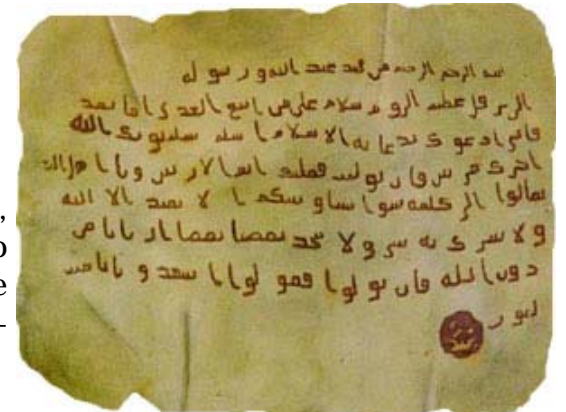 بسم الله الرحمن الرحيم من محمد عبد الله ورسوله
الى هرقل عظيم الروم سلام على من اتبع الهدى اما بعد
فانى ادعوك بدعاية الاسلام اسلم تسلم يوتك الله
اجرك مرتين فان توليت فعليك اثم الاريسين ويا اهل الك
تعالوا الى كلمة سوا بيننا وبينكم الا نعبد الا الله
ولا نشرك به شيا ولا يتخذ بعضنا بعضا اربابا من
دون الله فان تولوا فقولوا اشهدوا بانا مسـ
لمون